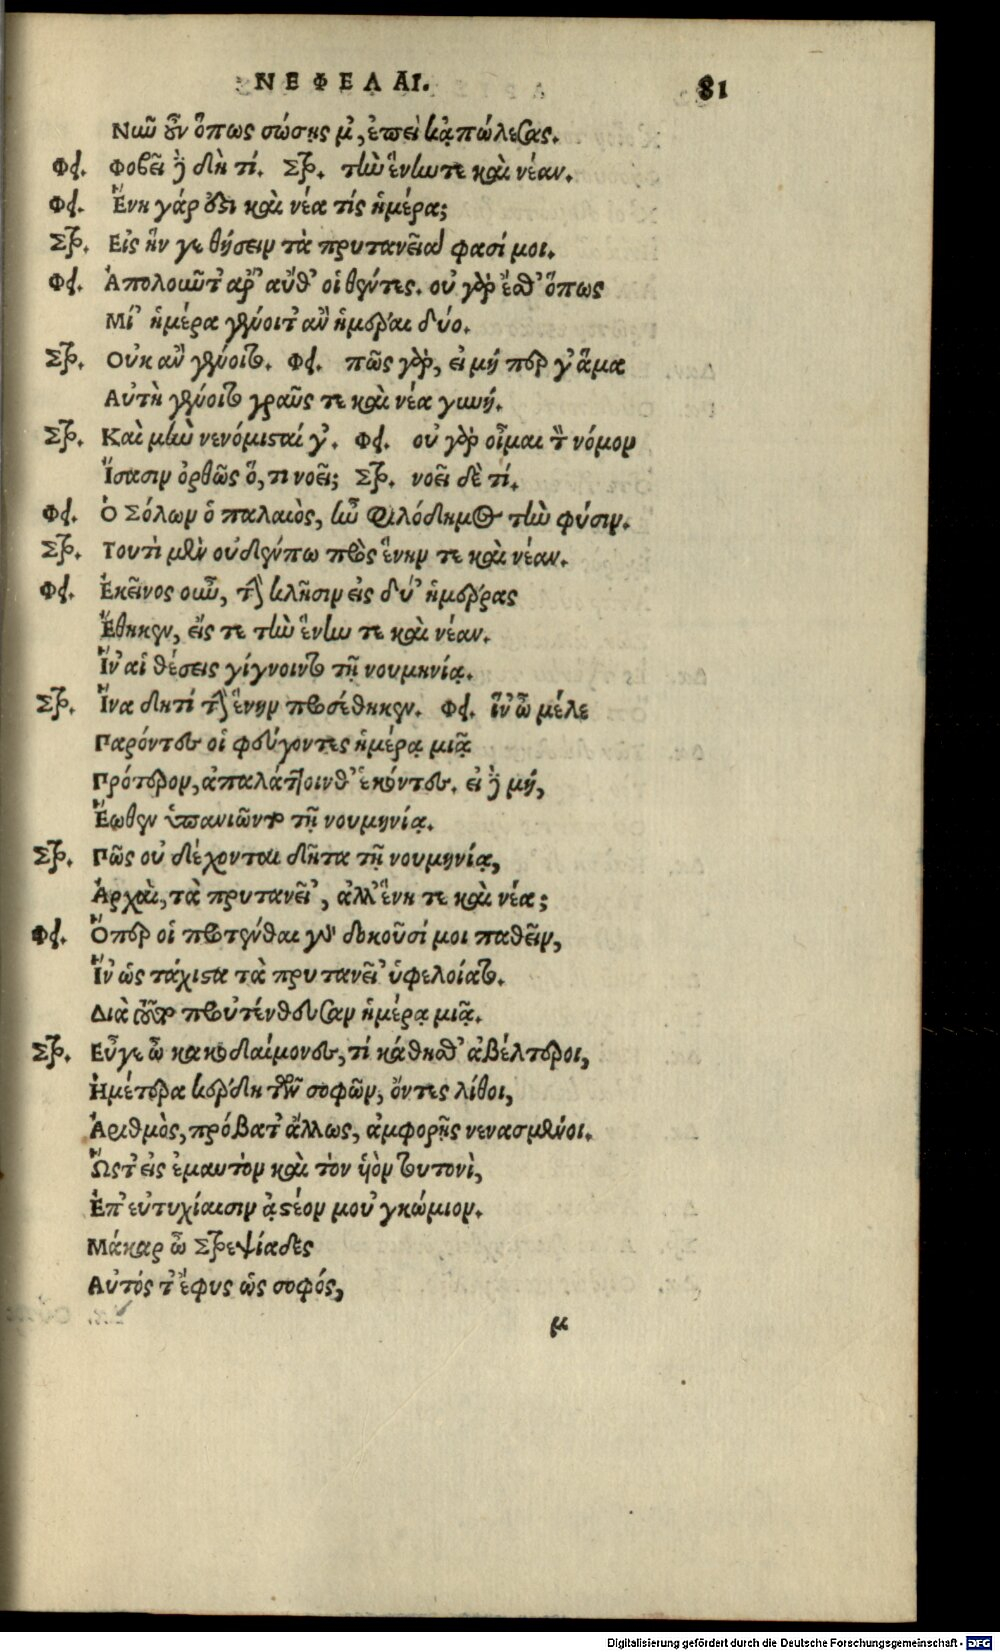 ΝΕΦΕΛΑΙ. 81
Νῦν οὖν ὅπως σώσῃς μ', ἐπεὶ κἀπώλεσας.
Φδ. Φοβεῖ δὲ δὴ τί. Στρ. τὴν ἕνην τε καὶ νέαν.
Φδ. Ἕνη γάρ ἐστι καὶ νέα τίς ἡμέρα;
Στρ. Εἰς ἥν γε θήσειν τὰ πρυτανεῖά φασί μοι.
Φδ. Ἀπολοῦντ' ἄρ' αὔθ' οἱ θέντες. οὐ γὰρ ἔσθ' ὅπως
Μί' ἡμέρα γένοιτ' ἂν ἡμέραι δύο.
Στρ. Οὐκ ἂν γένοιτο. Φδ. πῶς γὰρ, εἰ μή περ γ' ἅμα
Αὐτὴ γένοιτο γραῦς τε καὶ νέα γυνή.
Στρ. Καὶ μὴν νενόμισταί γ'. Φδ. οὐ γὰρ οἶμαι τὸν νόμον
Ἴσασιν ὀρθῶς ὅ, τι νοεῖ; Στρ. νοεῖ δὲ τί.
Φδ. Ὁ Σόλων ὁ παλαιὸς, ἦν φιλόδημος τὴν φύσιν.
Στρ. Τουτὶ μὲν οὐδέν πω πρὸς ἕνην τε καὶ νέαν.
Φδ. Ἐκεῖνος οὖν, τὴν κλῆσιν εἰς δύ' ἡμέρας
Ἔθηκεν, εἴς τε τὴν ἕνην τε καὶ νέαν.
Ἵν' αἱ θέσεις γίγνοιντο τῇ νουμηνίᾳ.
Στρ. Ἵνα δητί τὴν ἕνην προσέθηκεν. Φδ. ἵν' ὦ μέλε
Παρόντες οἱ φεύγοντες ἡμέρᾳ μιᾷ
Πρότερον, ἀπαλάττοινθ' ἑκόντες. εἰ δὲ μή,
Ἕωθεν ὑπανιῶντο τῇ νουμηνίᾳ.
Στρ. Πῶς οὐ δέχονται δῆτα τῇ νουμηνίᾳ,
Ἀρχαὶ, τὰ πρυτανεῖ', ἀλλ' ἕνῃ τε καὶ νέᾳ;
Φδ. Ὅπερ οἱ προτένθαι γὰρ δοκοῦσί μοι παθεῖν,
Ἵν' ὡς τάχιστα τὰ πρυτανεῖ' ὑφελοίατο.
Διὰ τοῦτο προὐτένθευσαν ἡμέρᾳ μιᾷ.
Στρ. Εὖγε ὦ κακοδαίμονες, τί κάθησθ' ἀβέλτεροι,
Ἡμέτερα κέρδη τῶν σοφῶν, ὄντες λίθοι,
Ἀριθμὸς, πρόβατ' ἄλλως, ἀμφορῆς νενασμένοι.
Ὥστ' εἰς ἐμαυτὸν καὶ τὸν υἱὸν τουτονὶ,
Ἐπ' εὐτυχίαισιν ᾀστέον μοὐγκώμιον.
Μάκαρ ὦ Στρεψίαδες
Αὐτός τ' ἔφυς ὡς σοφός,
μ
Digitalisierung gefördert durch die Deutsche Forschungsgemeinschaft - DFG